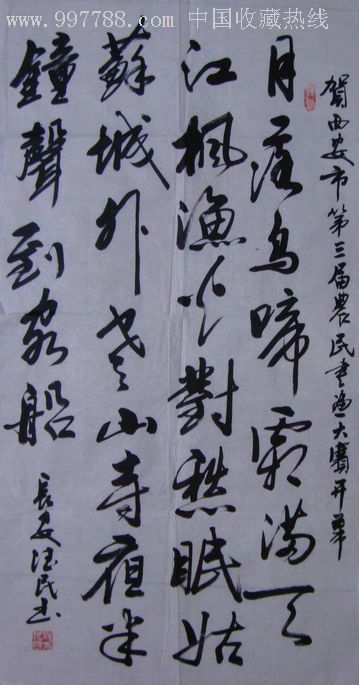 www.997788.com 中国收藏热线
賀西安市第三届農民書画大賽开幕
月落烏啼霜满天
江楓漁火對愁眠姑
蘇城外寒山寺夜半
鐘聲到客船
長安德民书